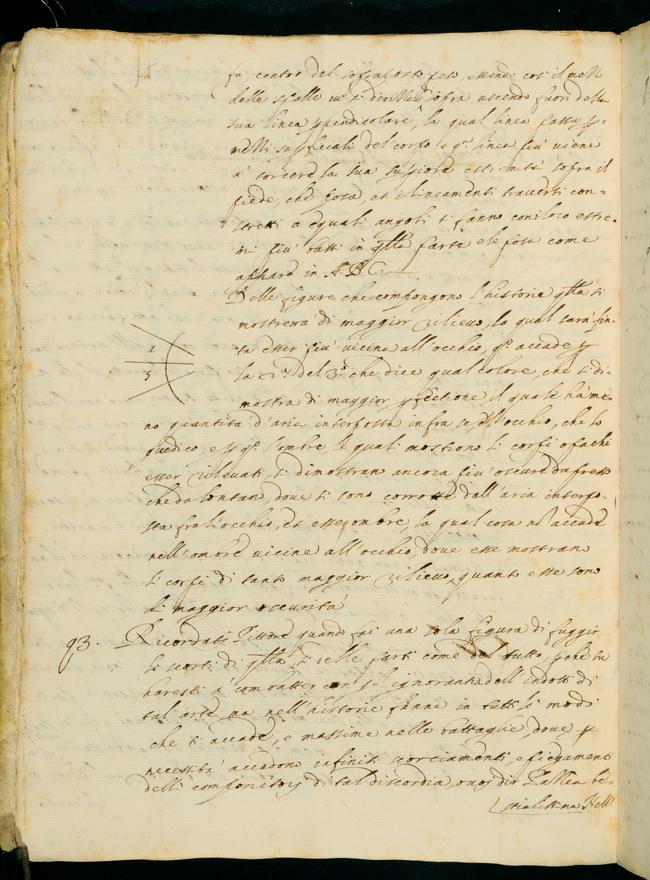 fa
fa centro del sopraposto peso, essendo così il mezzo
delle spalle si dirizza sopra uscendo fuori della
sua linea perpendicolare, la qual linea passa per i
mezzi superficiali del corpo e q.ª linea più viene
a' torcere la sua superiore estremità sopra il
piede, che posa, et i lineamenti traversi con=
stretti a equali angoli si fanno con i loco estre=
mi più bassi in q̃lla parte che posa come
appare in A. B. C.
Delle figure che compongono l'historie q̃lla si
mostrerà di maggior rilievo, la qual sarà fin=
ta esser più vicina all'occhio, q.º accade per
la 2.ª del 3.º che dice qual colore, che si di=
mostra di maggior perfectione il quale ha me=
a
5
no quantità d'aria interposta infra se et l'occhio, che lo
giudica, e per q.º l'ombre le quali mostrono li corpi opachi
esser rilevati, si dimostran ancora più oscure da presso
che da lontano, dove si sono corrotte dall'aria interpo=
sta fra l'occhio, et esse ombre, la qual cosa nõ accade
nell'ombre vicine all'occhio, dove esse mostrano
li corpi di tanto maggior rilievo, quanto esse sono
di maggior oscurità
93. Ricordati Pittore quando fai una sola figura di fuggir
li scorti di q̃lla, sì delle parti come del tutto, perche tu
haresti a' combatter con l'ignoranza dell'indotti di
tal arte, ma nell'historie fanne in tutti li modi
che ti accade, e massime nelle battaglie, dove per
necessità accadono infiniti scorciamenti, e piegamenti
delli componitori di tal discordia, o vuoi dir Pazzia be=
stialissima Nell'